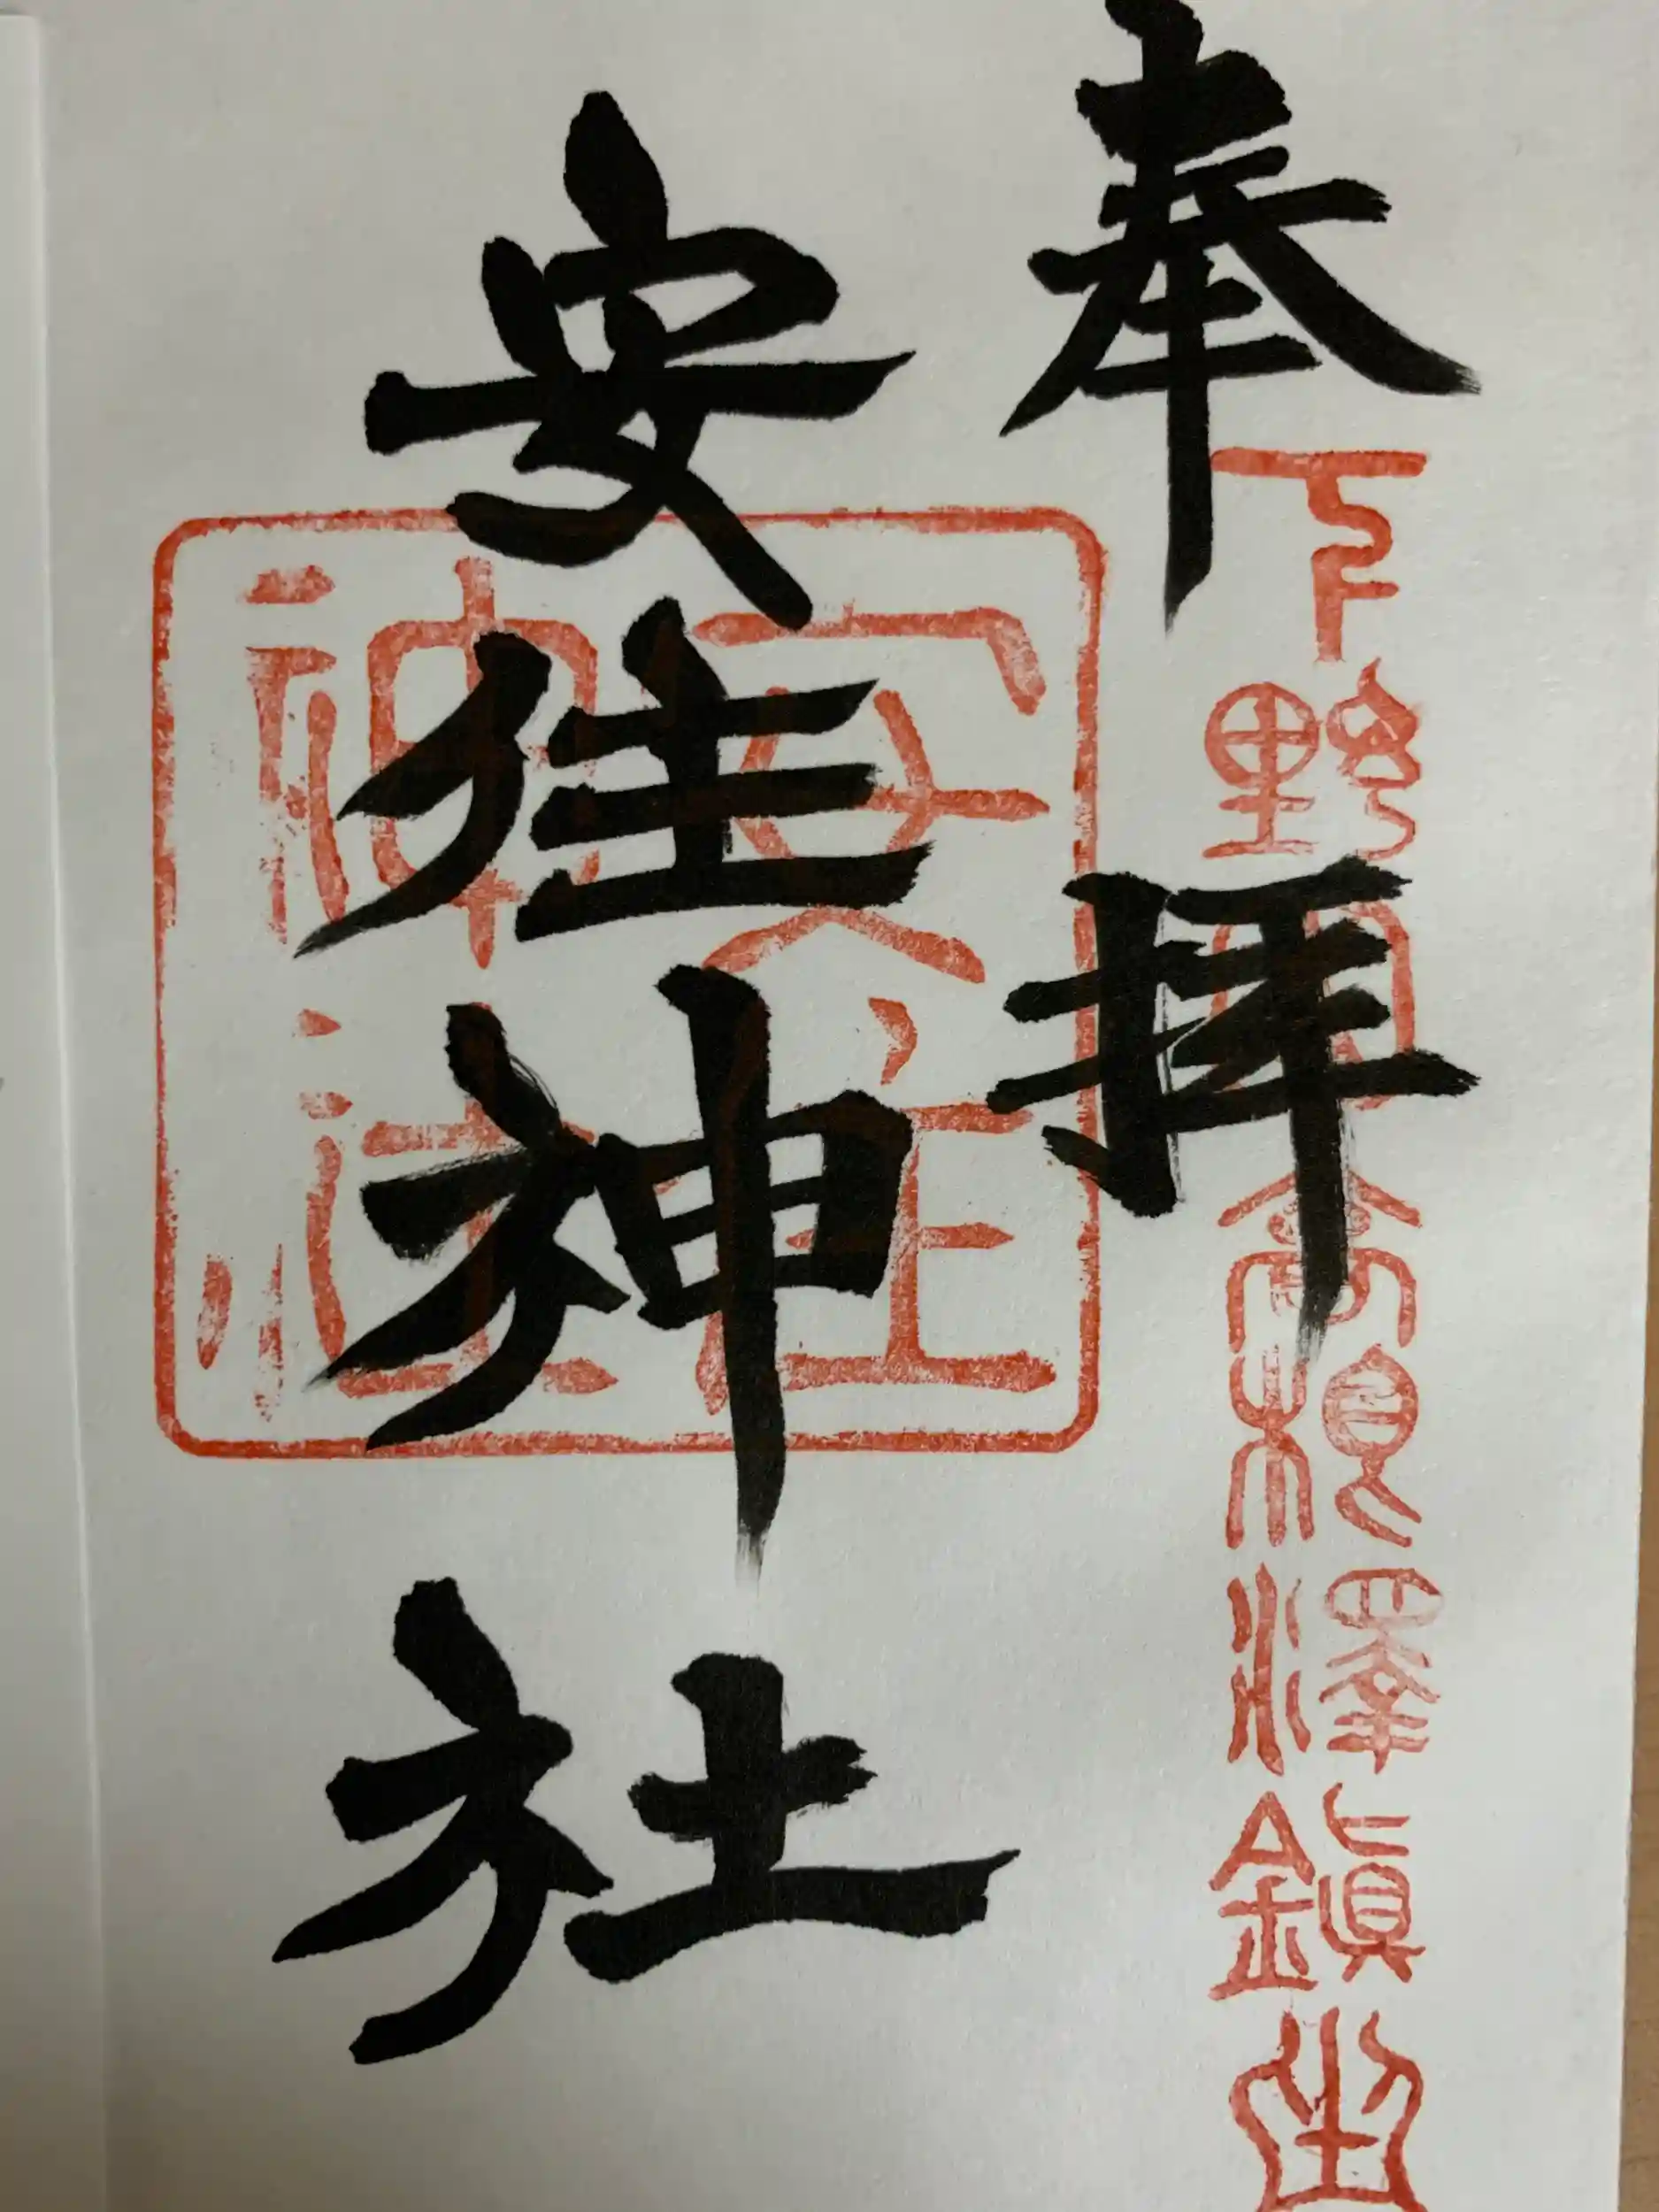 奉拝
下野
高根澤鎭坐
安住神社
安住
神社